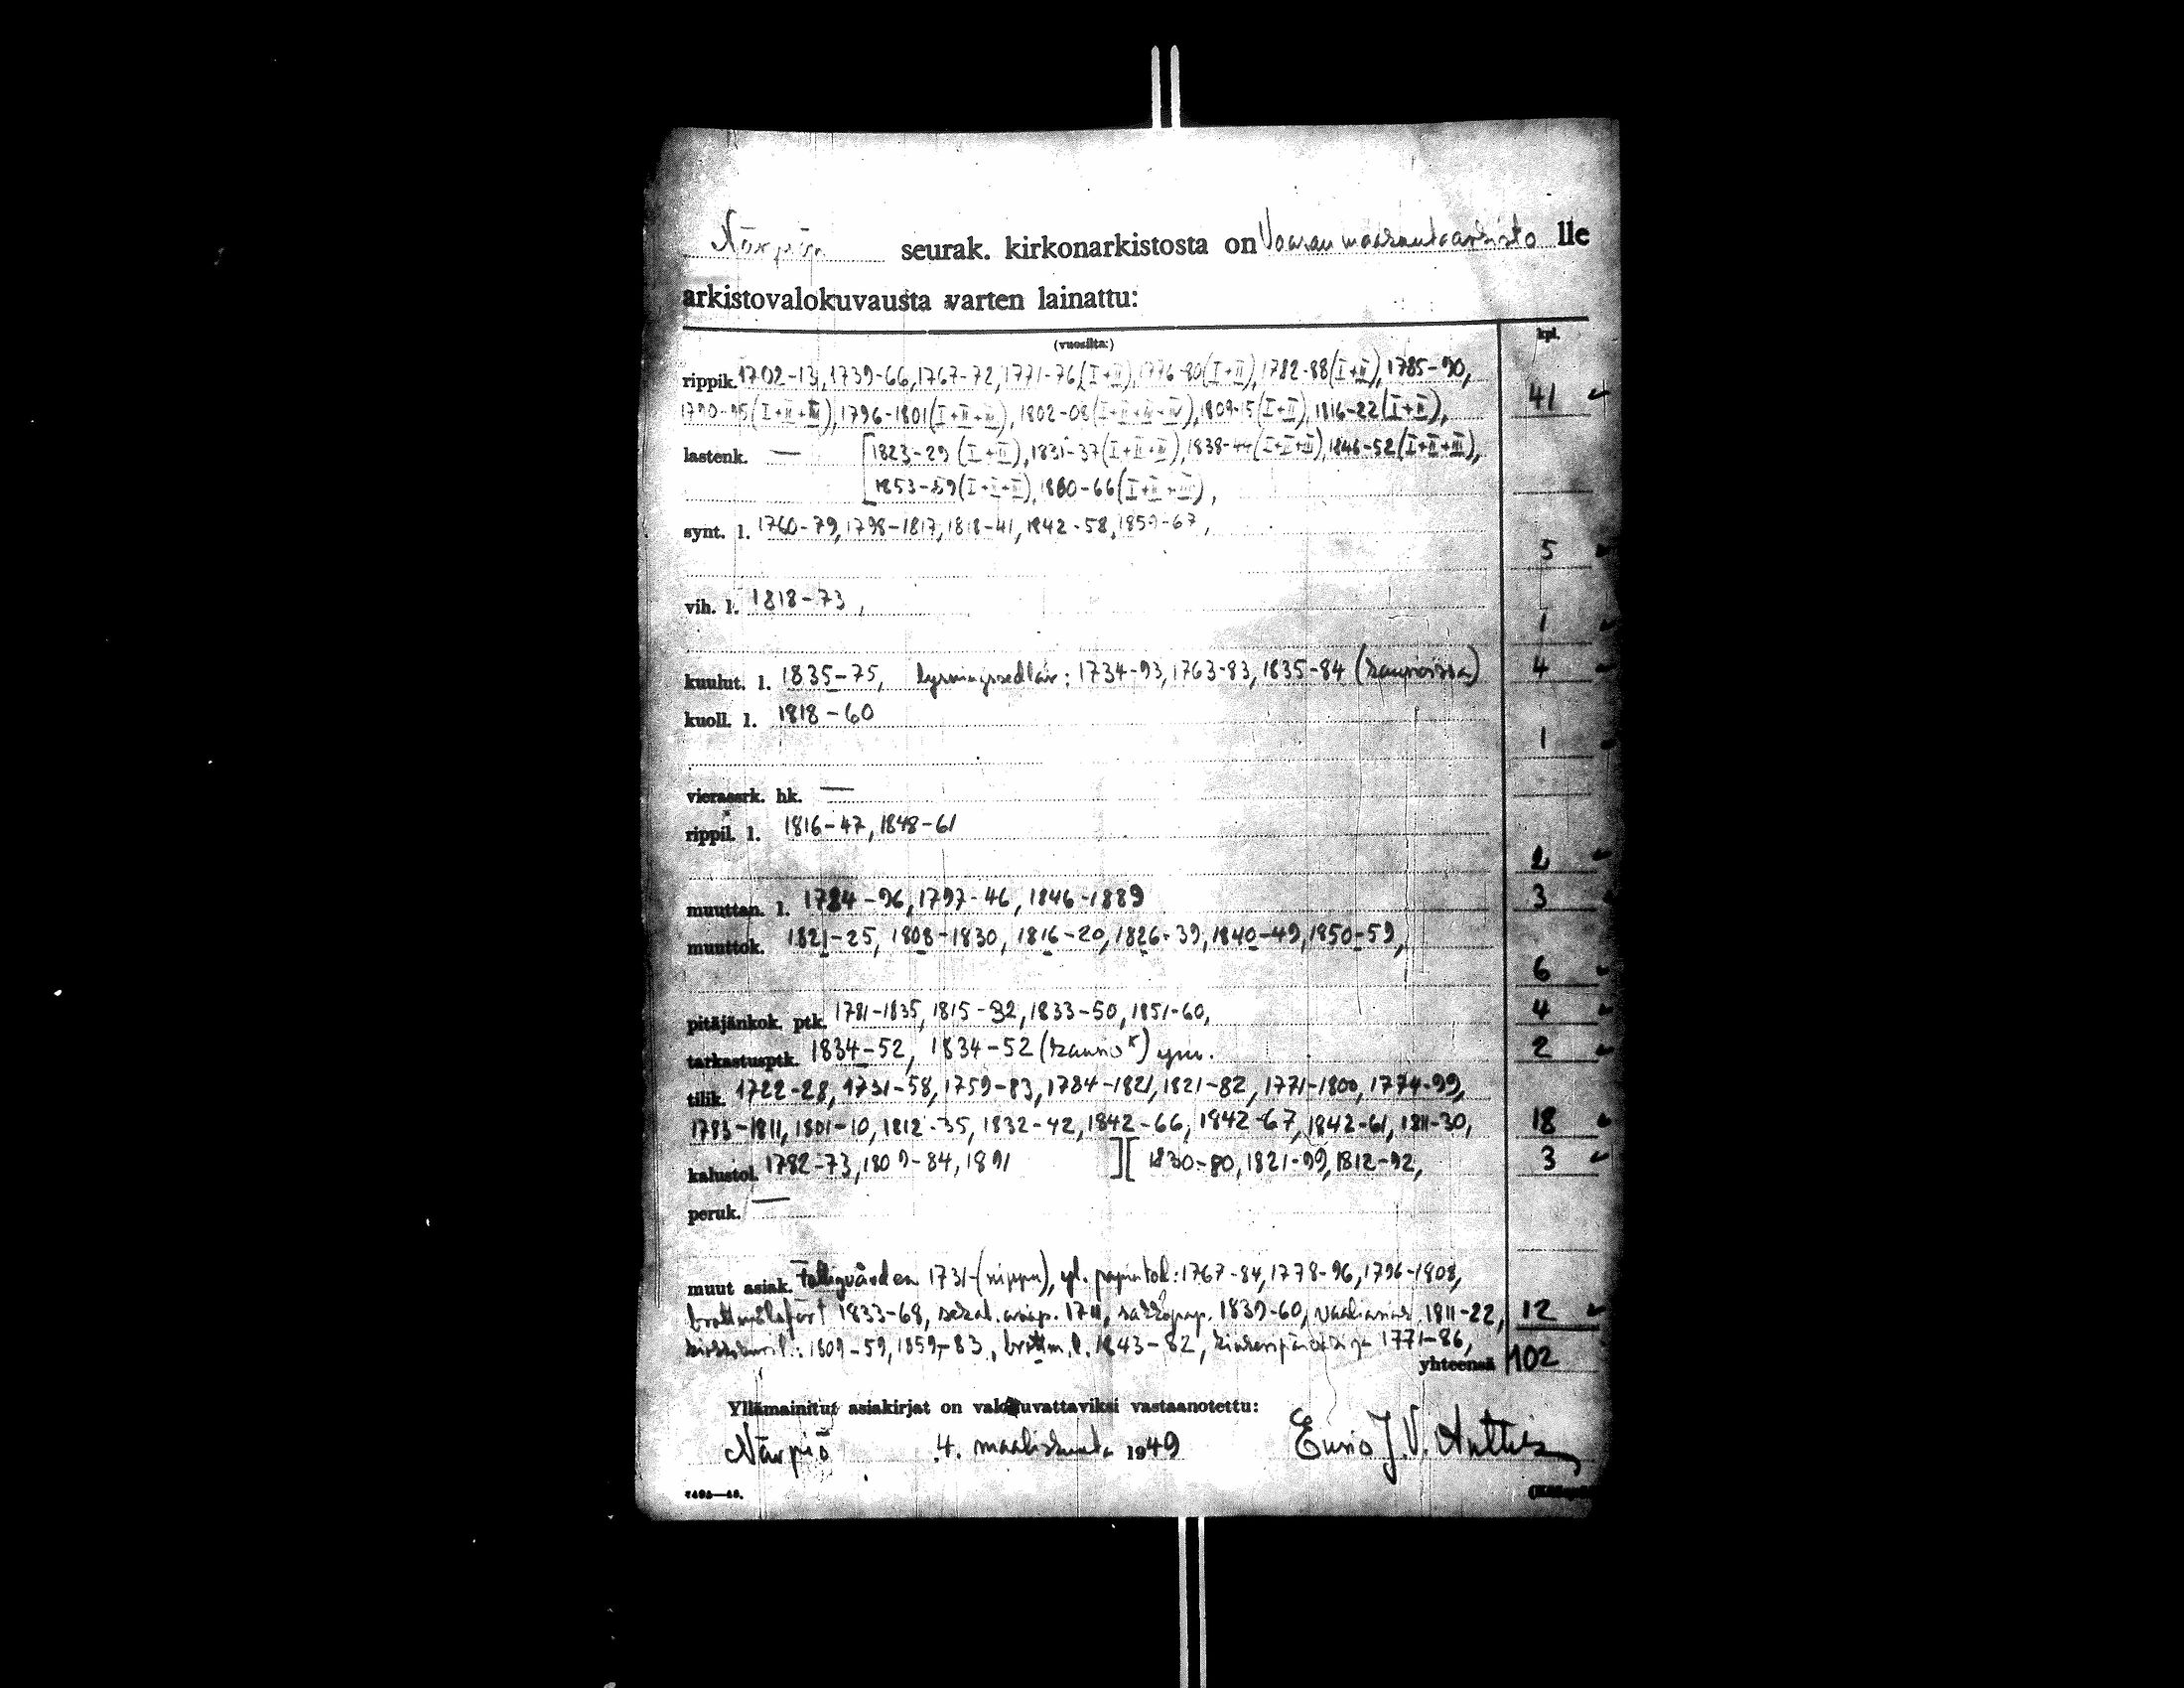 Närpiön seurak. kirkonarkistosta on Vaasan maakuntaarkisto lle
arkistovalokuvausta varten lainattu:
(vuosilta:) kpl.
rippik. 1702-13, 1739-66, 1767-72, 1771-76 (I+II), 1776-80 (I+II), 1782-88 (I+II), 1785-90,
1790-95 (I+II+III), 1796-1801 (I+II+III), 1802-08 (I+II+III+IV), 1809-15 (I+II), 1816-22 (I+II), 41
lastenk. — [1823-29 (I+II), 1831-37 (I+II+III), 1838-44 (I+II+III), 1846-52 (I+II+III),
1853-59 (I+II+III), 1860-66 (I+II+III),
synt. l. 1760-79, 1798-1817, 1818-41, 1842-58, 1859-67,
5
vih. l. 1818-73,
1
kuulut. l. 1835-75, lysningssedlar: 1734-93, 1763-83, 1835-84 (kansioissa) 4
kuoll. l. 1818-60
1
vierasrk. hk. —
rippil. l. 1816-47, 1848-61
2
muuttan. l. 1784-96, 1797-46, 1846-1889 3
muuttok. 1821-25, 1808-1830, 1816-20, 1826-39, 1840-49, 1850-59,
6
pitäjänkok. ptk. 1781-1835, 1815-32, 1833-50, 1851-60, 4
tarkastusptk. 1834-52, 1834-52 (kansio) ym. 2
tilik. 1722-28, 1731-58, 1759-83, 1784-1821, 1821-82, 1771-1800, 1774-99,
1783-1811, 1801-10, 1812-35, 1832-42, 1842-66, 1842-67, 1842-61, 1811-30, 18
kalustol. 1782-73, 1809-84, 1891 ][ 1830-80, 1821-99, 1812-92, 3
peruk. —
muut asiak. 1731- (nippu), yl. 1767-84, 1778-96, 1796-1808,
1833-68, sekal. 1711, 1839-60, 1811-22, 12
1809-59, 1859-83, brottm. l. 1843-82, 1771-86,
yhteensä 102
Yllämainitut asiakirjat on valokuvattaviksi vastaanotettu:
Närpiö 4. maaliskuuta 1949 Eunio J. V.